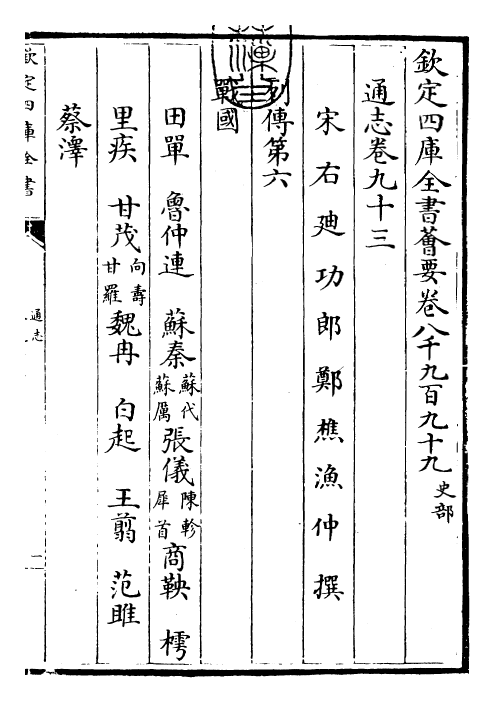 欽定四庫全書薈要卷八千九百九十九 史部
通志卷九十三
宋右迪功郎鄭樵漁仲撰
列傳第六
戰國
田單 魯仲連 蘇秦 蘇代 蘇厲 張儀 陳軫 犀首 商鞅 樗
里疾 甘茂 向壽 甘羅 魏冉 白起 王翦 范雎
蔡澤
欽定四庫全書
通志